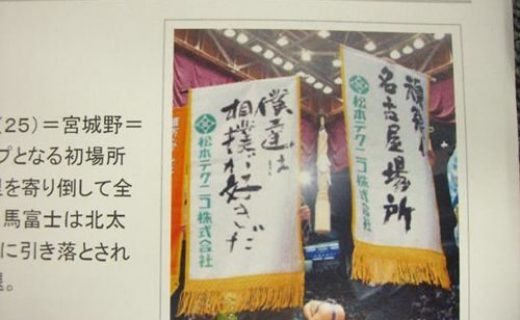 (25)=宮城野=
プとなる初場所
を寄り倒して全
馬富士は北太
に引き落とされ
僕達は
相撲が好きだ
松本テクニコ株式会社
名古屋場所
松本テクニコ株式会社